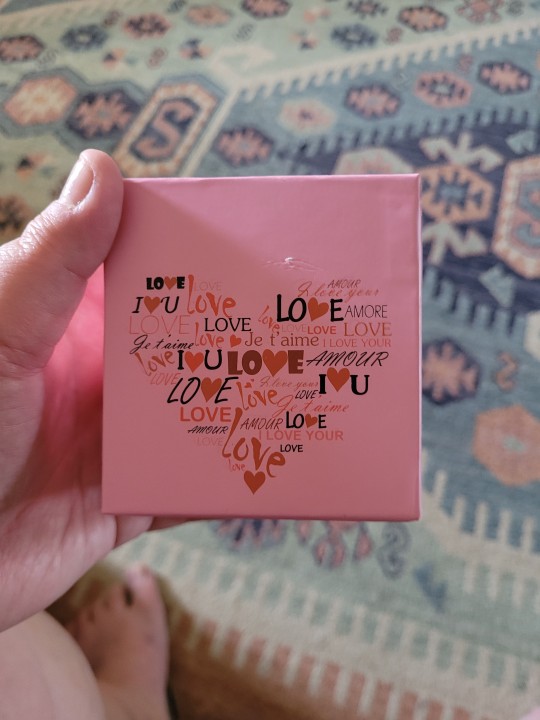 LOVE LOVE AMOUR
I♥U love I love your
LOVE AMORE
LOVE LOVE love LOVE LOVE LOVE
Je t'aime love ♥ Je t'aime I LOVE YOUR
love I♥U LOVE AMOUR
LOVE LOVE love I love your LOVE I♥U
LOVE Je t'aime
AMOUR AMOUR LOVE
LOVE love I LOVE YOUR
love LOVE